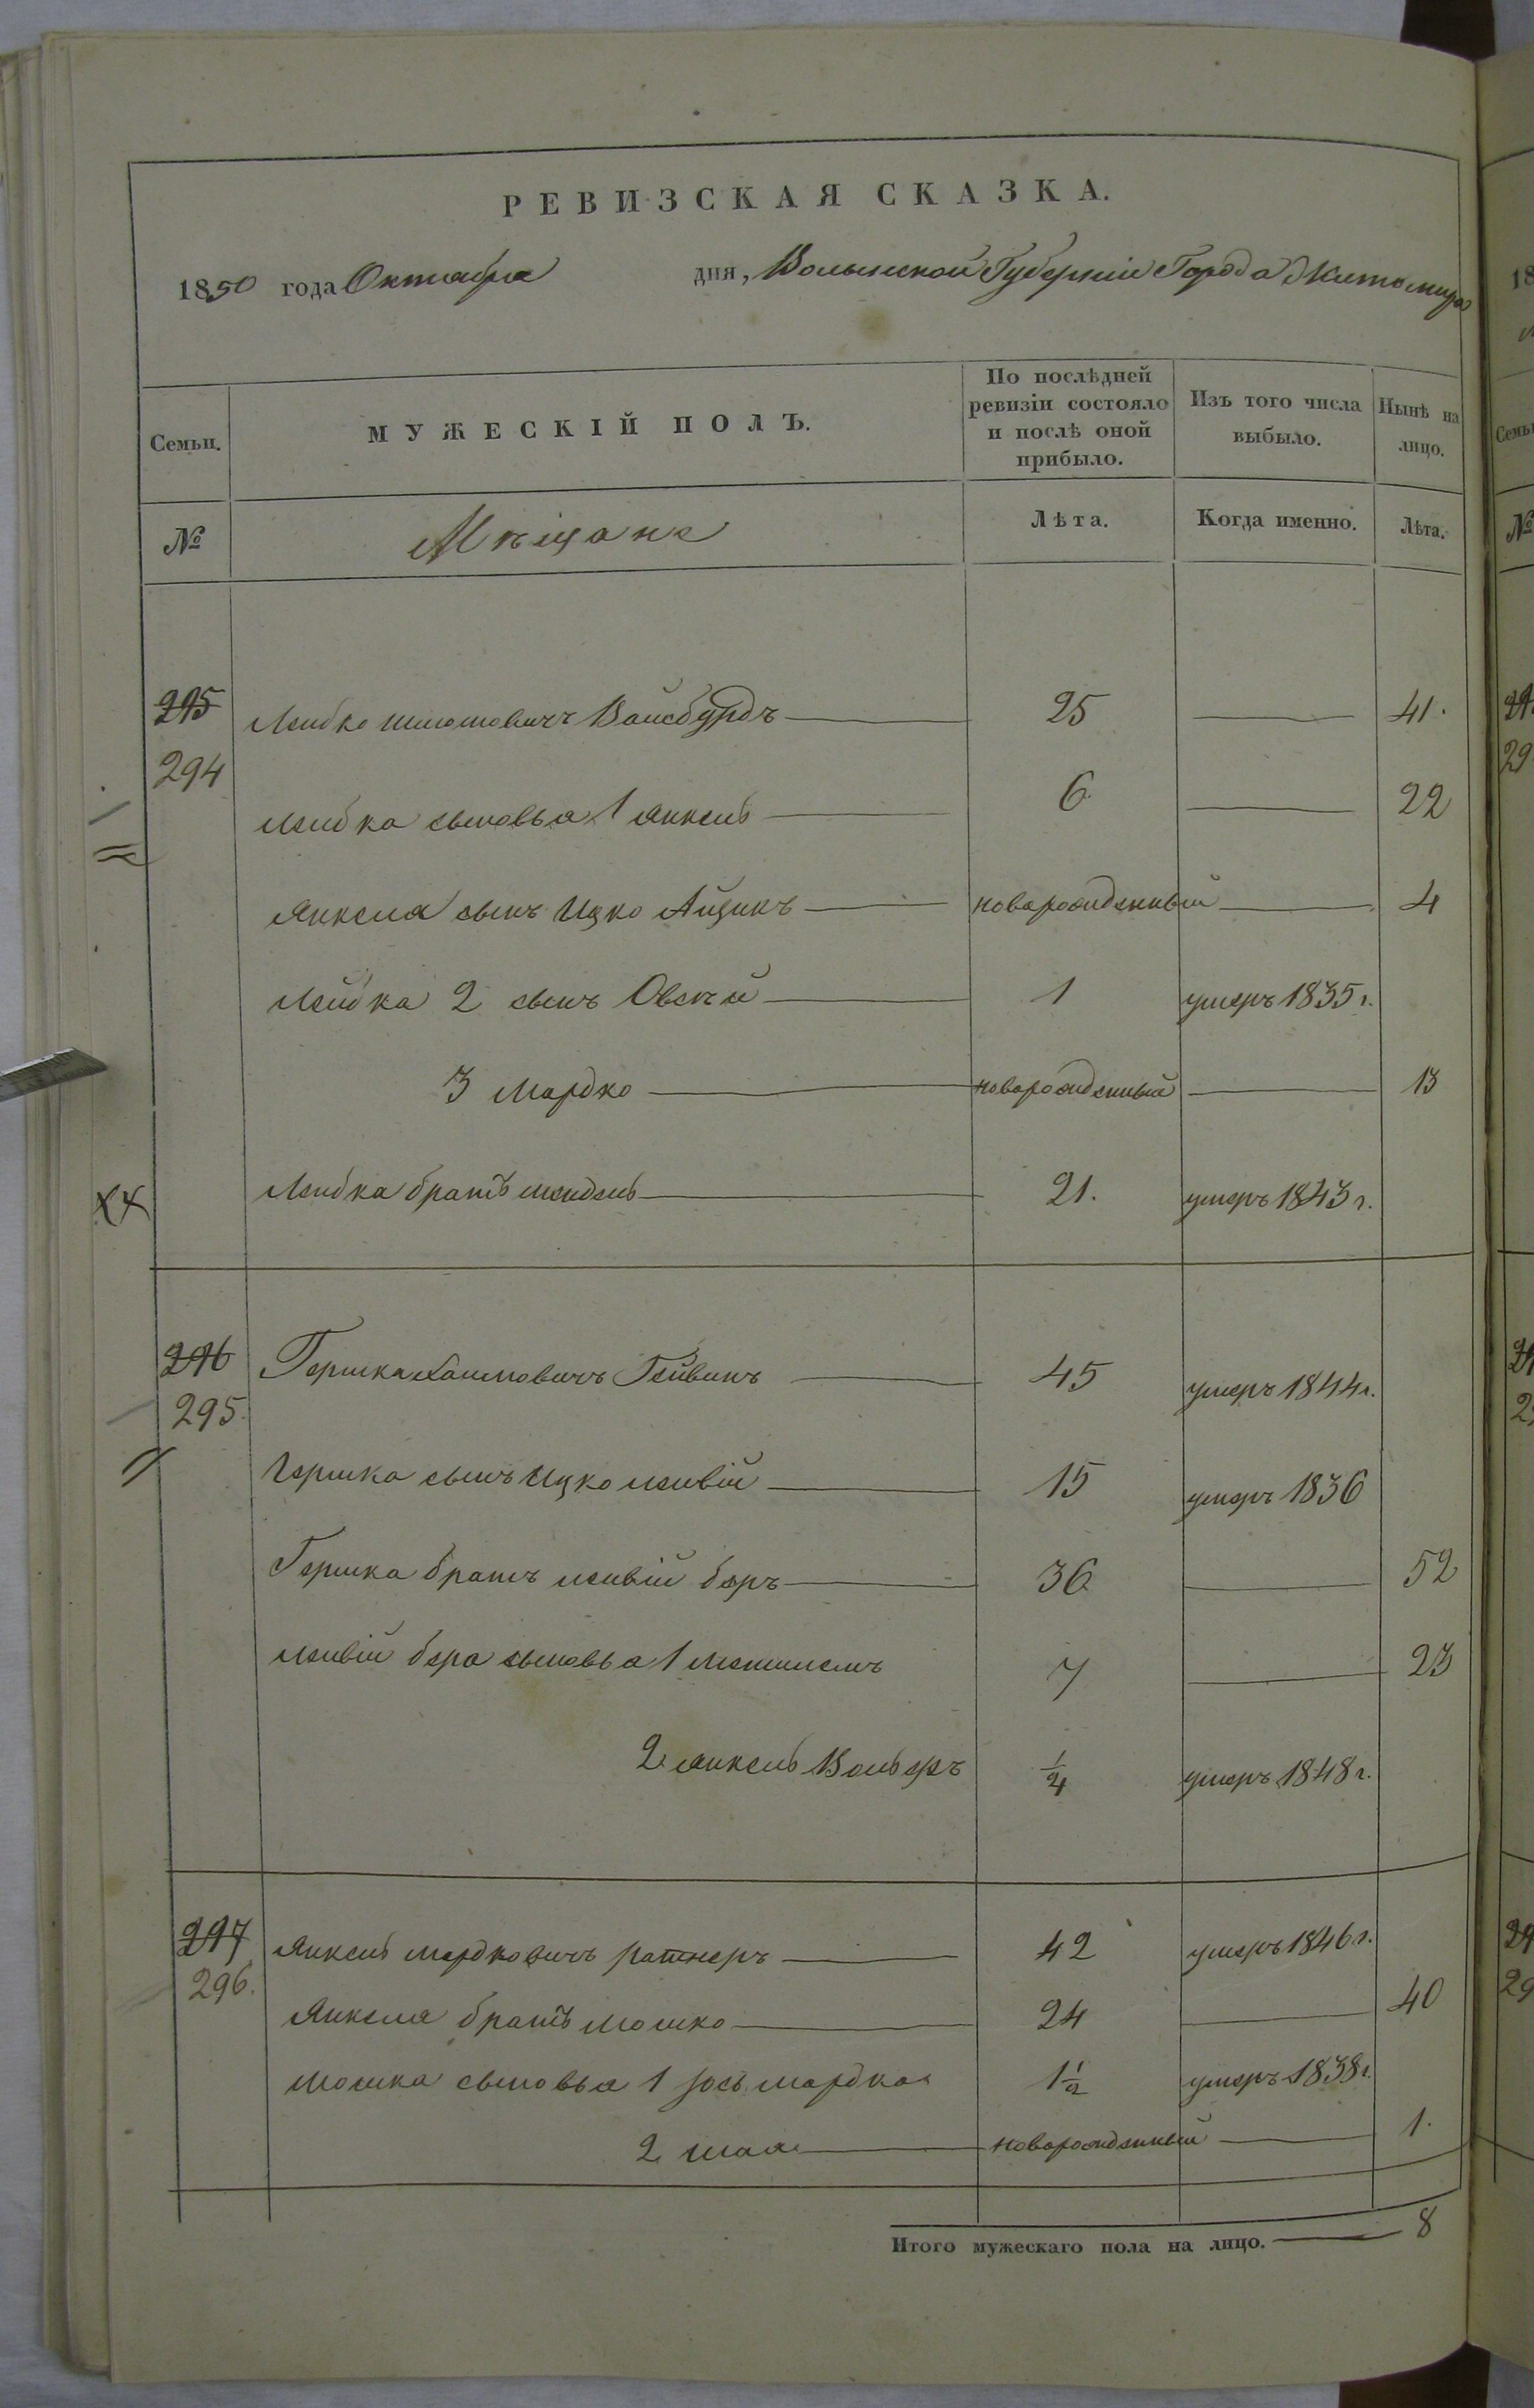 РЕВИЗСКАЯ СКАЗКА.
1850 года Октября дня, Волынской Губерніи Города Житомира
Семьи. МУЖЕСКІЙ ПОЛЪ. По послѣдней ревизіи состояло и послѣ оной прибыло. Изъ того числа выбыло. Нынѣ на лицо.
№ Мѣщане Лѣта. Когда именно. Лѣта.
295 Лейбко Шмомовичъ Вайсбурдъ 25 41.
294
Лейбка сыновья 1 Янкель 6 22
Янкеля сынъ Ицко Айзикъ новорожденный 4
Лейбка 2 сынъ Овсѣй 1 умеръ 1835 г.
3 Мордко новорожденный 13
Лейбка братъ Мендель 21. умеръ 1843 г.
296 Гершка Хаимовичъ Гейвинъ 45 умеръ 1844 г.
295.
Гершка сынъ Ицко Лейвій 15 умеръ 1836
Гершка братъ Лейвій Беръ 36 52
Лейвій Бера сыновья 1 7 23
2 Янкель Вольфъ 1/4 умеръ 1848 г.
297 Янкель Мордковичъ Ратнеръ 42 умеръ 1846 г.
296.
Янкеля братъ Мошко 24 40
Мошка сыновья 1 Іось Мордка 1 1/2 умеръ 1838 г.
2 Шая новорожденный 1.
Итого мужескаго пола на лицо. 8